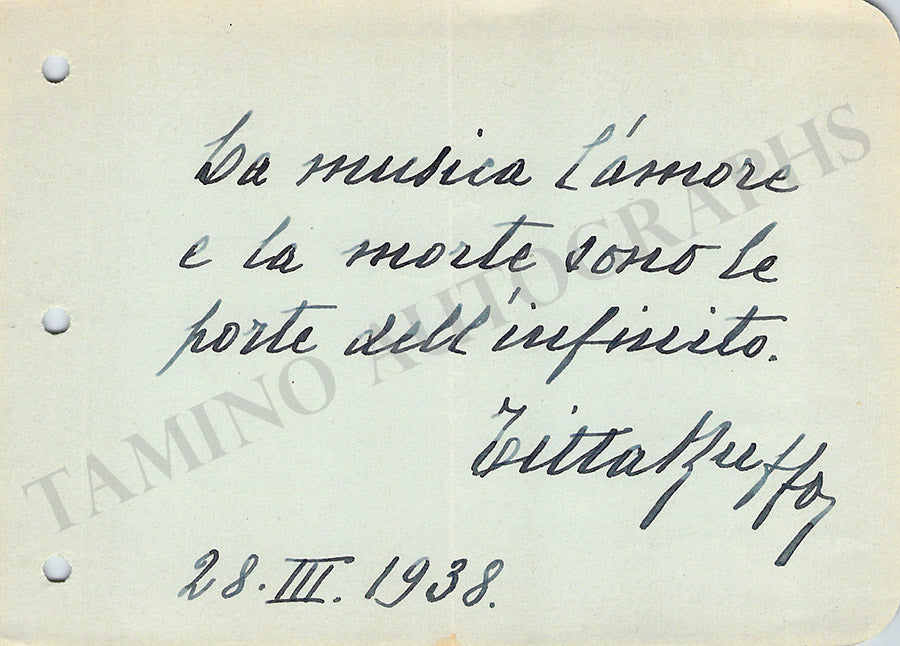 La musica l'amore
e la morte sono le
porte dell'infinito.
Titta Ruffo
28. III. 1938.
TAMINO AUTOGRAPHS